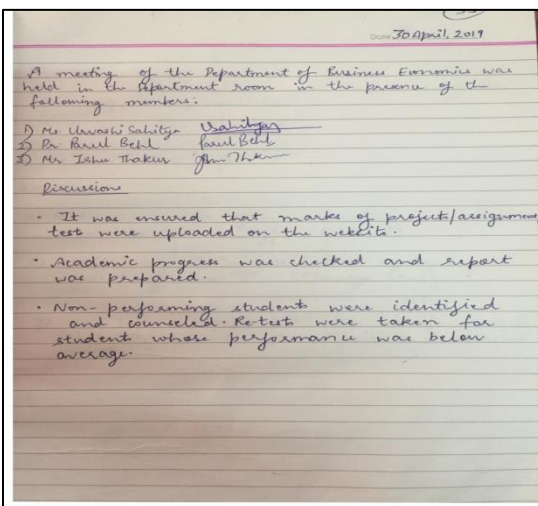 Date 30 April, 2019
A meeting of the Department of Business Economics was
held in the Department room in the presence of the
following members:
1) Ms Urvashi Sahitya Usahitya
2) Dr Parul Behl Parul Behl
3) Mr Ishu Thakur
Discussion
· It was ensured that marks of project/assignment,
test were uploaded on the website.
· Academic progress was checked and report
was prepared.
· Non-performing students were identified
and counseled. Re-tests were taken for
student whose performance was below
average.